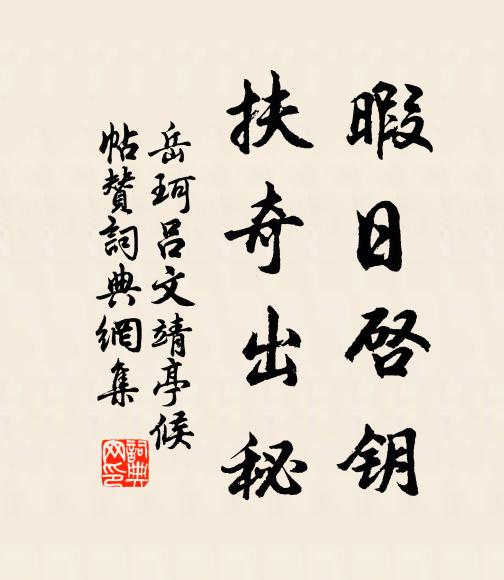 暇日启钥
扶奇出秘
岳珂吕文靖亭候
帖赞詞典網集
詞典網印